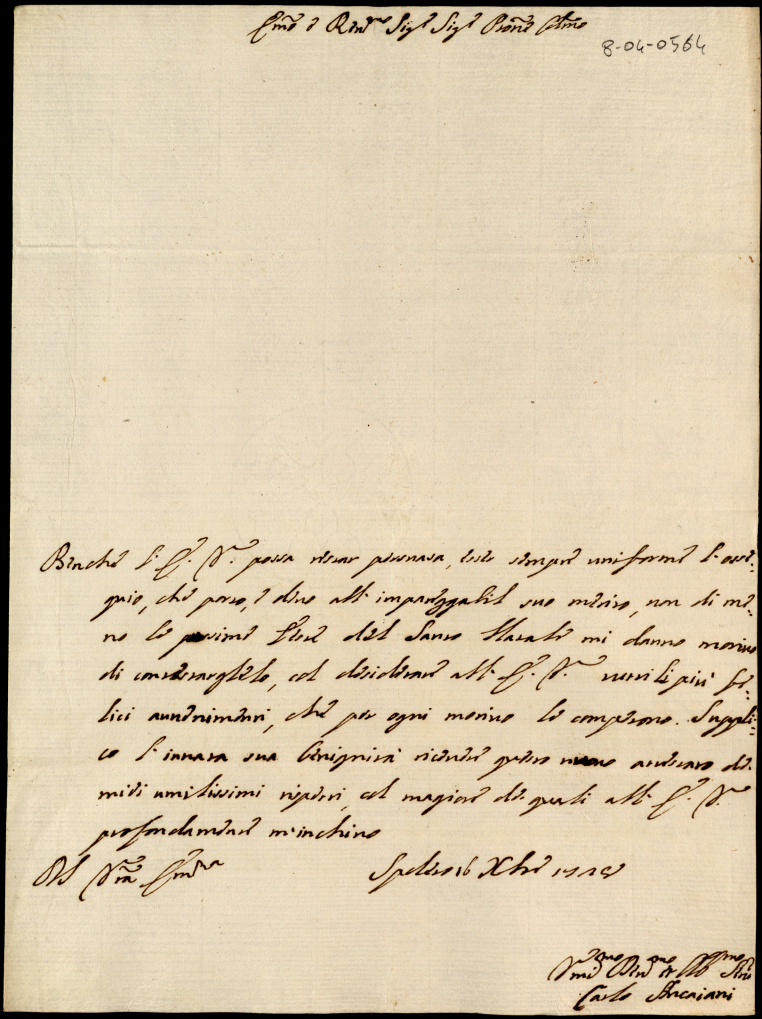 Em̃o e Reu.mo Sig.r Sig.r Pron̄e Col.mo
8-04-0564
Benche l'E. V.ra possa restar persuasa, esser sempre uniforme l'osse-
quio, che porto, e deuo all'impareggabil suo merito, non di me-
no le prossime Feste del Santo Natale mi danno motiuo
di contestarglelo, col desiderare all'E. V.ra tutti li più fe-
lici auuenimenti, che per ogni motiuo le competono. Suppli-
co l'innata sua benignità riceuere questo nuouo attestato de
miei umilissimi rispetti, col magiore de quali all'E. V.ra
profondamente m'inchino
Di V.ra Em̃za Spoleto 16 Xbre
Carlo Ancaiani